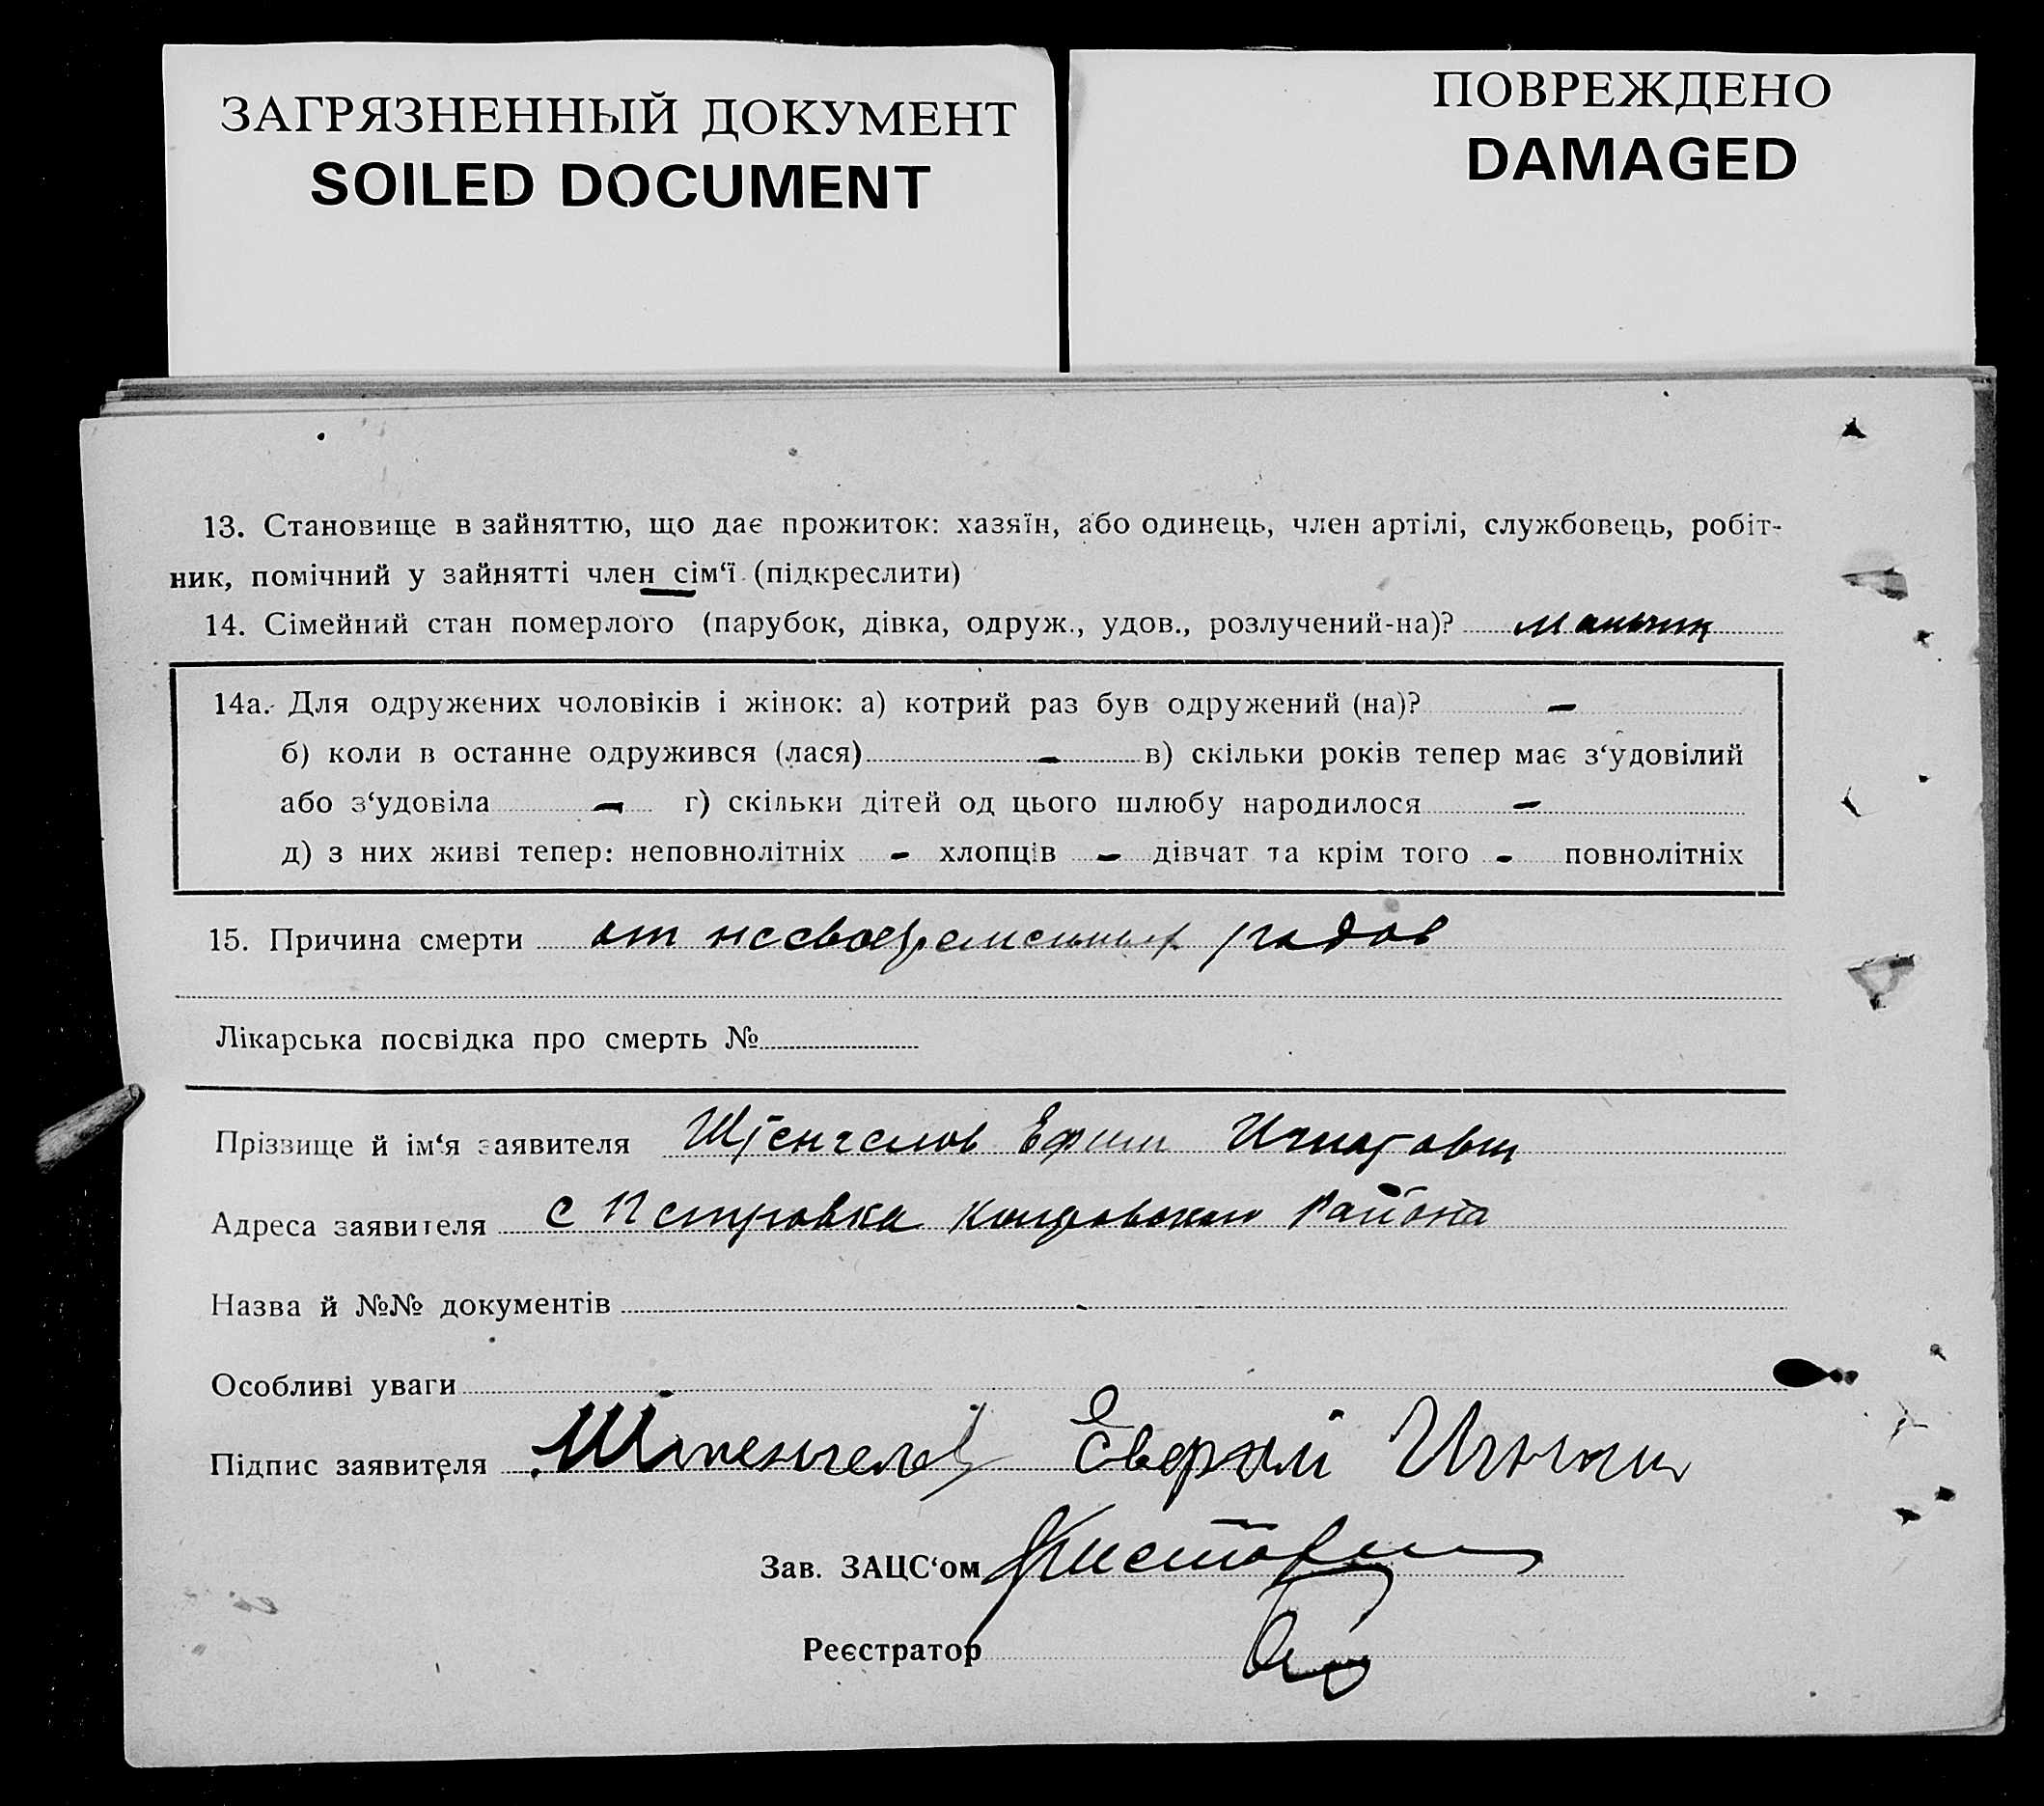 ЗАГРЯЗНЕННЫЙ ДОКУМЕНТ
SOILED DOCUMENT
ПОВРЕЖДЕНО
DAMAGED
13. Становище в зайняттю, що дає прожиток: хазяїн, або одинець, член артілі, службовець, робіт-
ник, помічний у зайнятті член сім‘ї (підкреслити)
14. Сімейний стан померлого (парубок, дівка, одруж., удов., розлучений-на)? мальчик
14а. Для одружених чоловіків і жінок: а) котрий раз був одружений (на)? —
б) коли в останне одружився (лася) — в) скільки років тепер має з‘удовілий
або з‘удовіла — г) скільки дітей од цього шлюбу народилося —
д) з них живі тепер: неповнолітніх - хлопців - дівчат та крім того - повнолітніх
15. Причина смерти от несвоевременных родов
Лікарська посвідка про смерть №
Прізвище й ім‘я заявителя Ефим
Адреса заявителя с Петровка района
Назва й №№ документів
Особливі уваги
Підпис заявителя
Зав. ЗАЦС‘ом
Реєстратор